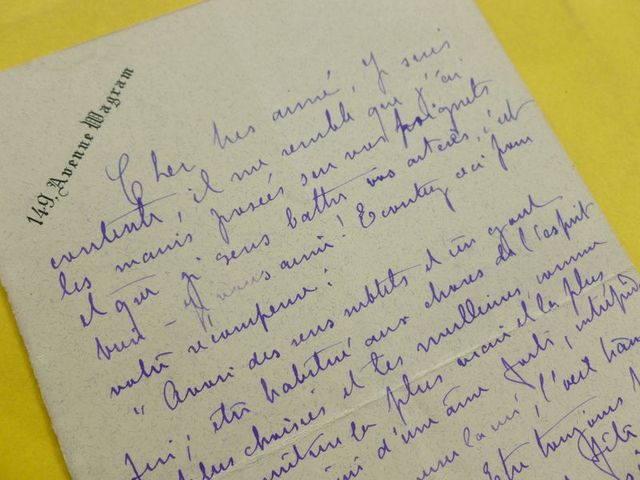 149, Avenue Wagram
Cher très aimé, je suis
contente, il me semble que j'ai
les mains posées sur vos poignets
et que je sens battre vos artères, c'est
bon - Je vous aime! Ecoutez ceci pour
votre récompense:
" Avoir des sens subtils et un goût
fin; être habitué aux choses de l'esprit
les plus choisies et les meilleures, comme
la plus vraie et la plus
d'une âme forte, intrépide
c'est
Être toujours